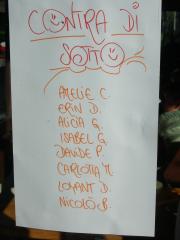 CONTRA DI
SOTTO
AMELIE C.
ERIN D.
ALICIA G.
ISABEL G.
DAVIDE P.
CARLOTTA M.
LORANT D.
NICOLÒ B.